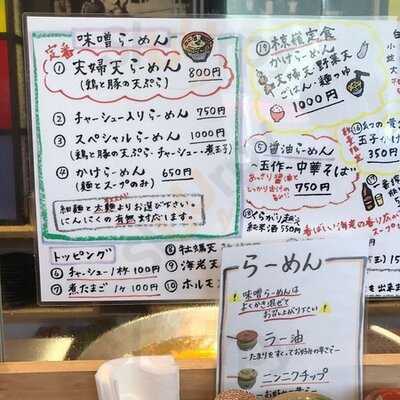 定番
味噌らーめん
① 夫婦天らーめん 800円
(鶏と豚の天ぷら)
② チャーシュー入りらーめん 750円
③ スペシャルらーめん 1000円
(鶏と豚の天ぷら・チャーシュー・煮玉子)
④ かけらーめん 650円
(麺とスープのみ)
細麺と太麺よりお選び下さい。
にんにくの有無対応します。
トッピング
⑥ チャーシュー1枚 100円
⑦ 煮たまご 1ケ 100円
⑧ 牡蠣天
⑨ 海老天
⑩ ホルモン
定食
かけらーめん
夫婦天・野菜天
ごはん・麺つゆ
1000円
⑤ 醤油らーめん
～玉作～中華そば
あっさり醤油と
750円
純米酒 550円
350円
らーめん
味噌らーめんは
よくかき混ぜて
お召し上がり下さい!
ラー油
ニンニクチップ